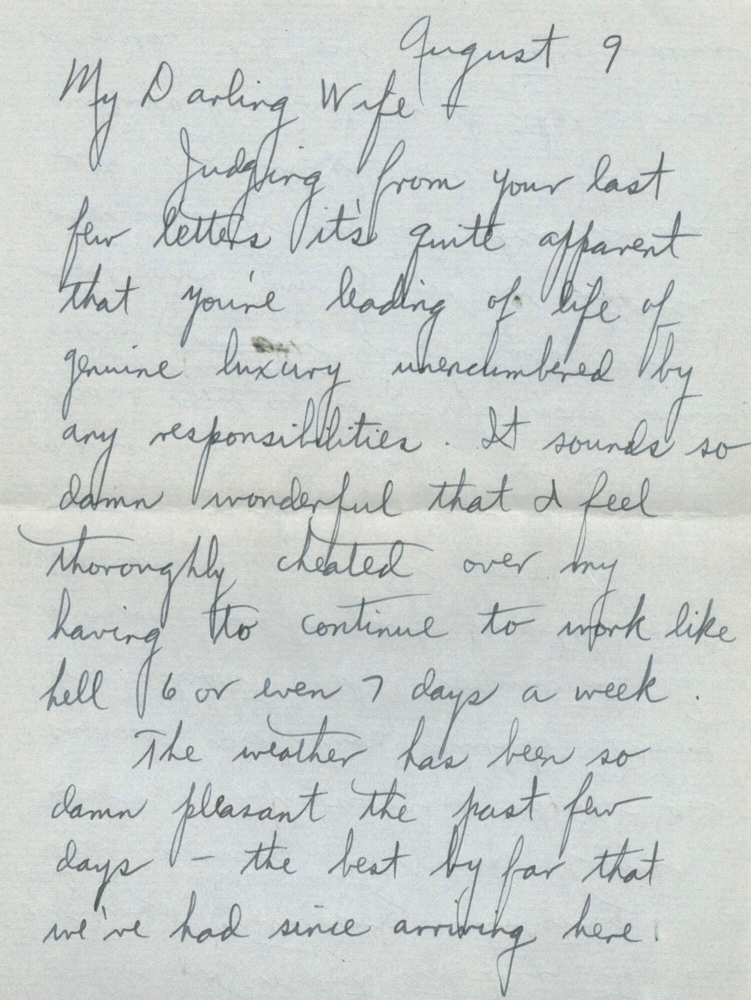 August 9
My Darling Wife -
Judging from your last
few letters it's quite apparent
that you're leading of life of
genuine luxury unencumbered by
any responsibilities. It sounds so
damn wonderful that I feel
thoroughly cheated over my
having to continue to work like
hell 6 or even 7 days a week.
The weather has been so
damn pleasant the past few
days - the best by far that
we've had since arriving here.